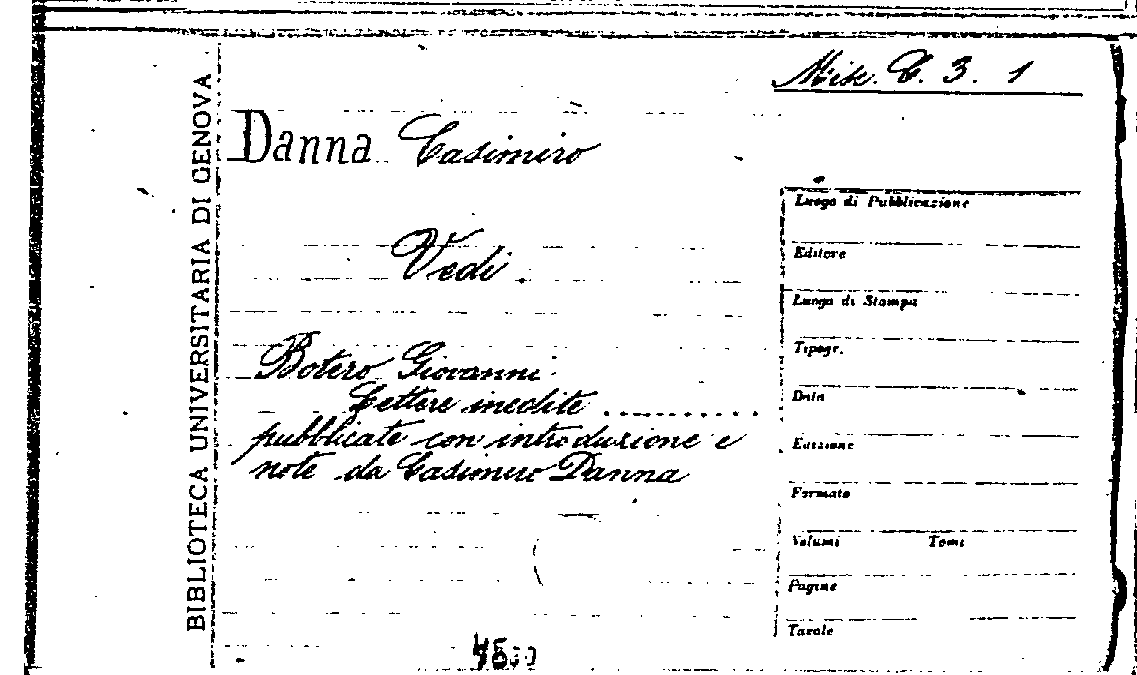 BIBLIOTECA UNIVERSITARIA DI GENOVA
Misc. C. 3. 1
Danna Casimiro
Vedi
Botero Giovanni
Lettere inedite ..........
pubblicate con introduzione e
note da Casimiro Danna
Luogo di Pubblicazione
Editore
Luogo di Stampa
Tipogr.
Data
Edizione
Formato
Volumi Tomi
Pagine
Tavole